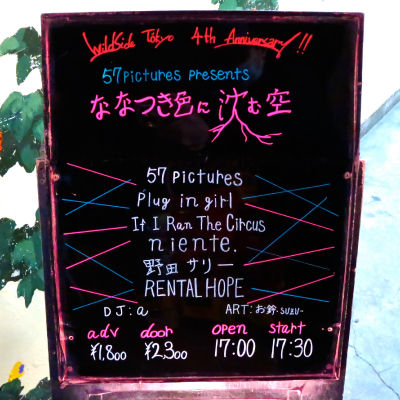 WildSide Tokyo 4th Anniversary!!
57pictures presents
ななつき色に沈む空
57 pictures
Plug in girl
If I Ran The Circus
niente.
野田 サリー
RENTAL HOPE
DJ:a ART:お鈴-suzu-
adv door open start
¥1.800 ¥2.300 17:00 17:30